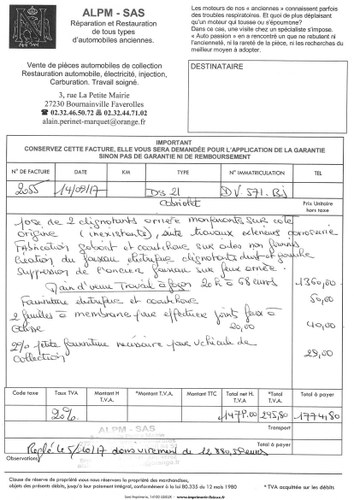 ALPM - SAS
Réparation et Restauration
de tous types
d'automobiles anciennes.
Vente de pièces automobiles de collection
Restauration automobile, électricité, injection,
Carburation. Travail soigné.
3, rue La Petite Mairie
27230 Bournainville Faverolles
☎ 02.32.46.50.72 ✆ 02.32.44.71.02
alain.perinet-marquet@orange.fr
Les moteurs de nos « anciennes » connaissent parfois
des troubles respiratoires. Et quoi de plus déplaisant
qu'un moteur qui tousse ou s'époumone?
Dans ce cas, une visite chez un spécialiste s'impose.
« Auto passion » en a rencontré un que ne rebutent ni
l'ancienneté, ni la rareté de la pièce, ni les recherches du
meilleur moyen à adopter.
DESTINATAIRE
IMPORTANT
CONSERVEZ CETTE FACTURE, ELLE VOUS SERA DEMANDÉE POUR L'APPLICATION DE LA GARANTIE
SINON PAS DE GARANTIE NI DE REMBOURSEMENT
N° DE FACTURE DATE KM TYPE N° IMMATRICULATION TEL
2055 14/09/17 DS 21 DV 571. BJ
Cabriolet
Prix Unitaire
hors taxe
pose de 2 clignotants arrière sur côté
origine (inexistants), suite travaux carrosserie
Fabrication gabarit et caoutchouc sur ailes non fournis
Création du faisceau électrique clignotants
Suppression de l'ancien faisceau sur feux arrière.
Main d'œuvre Travail à façon 20h à 68 euros 1360,00
Fourniture électrique et caoutchouc 50,00
2 feuilles à membrane pour effectuer joints face à
20,00 40,00
2% petite fourniture nécessaire pour véhicule de
collection 29,00
Code taxe Taux TVA Montant H T.V.A. Montant TVA Montant TTC Total net H. T.V.A. Total T.V.A. Total à payer
20% 1479.00 295,80 1774,80
ALPM - SAS
Transport
Observations
Réglé le 5/10/17 dans virement de 12 880,39 euros
Total à payer
Clause de réserve de propriété : nous nous réservons la propriété
objets des présents débits, jusqu'à leur paiement intégral, conformément à la loi 80.335 du 12 mai 1980
*TVA acquittée sur les débits.